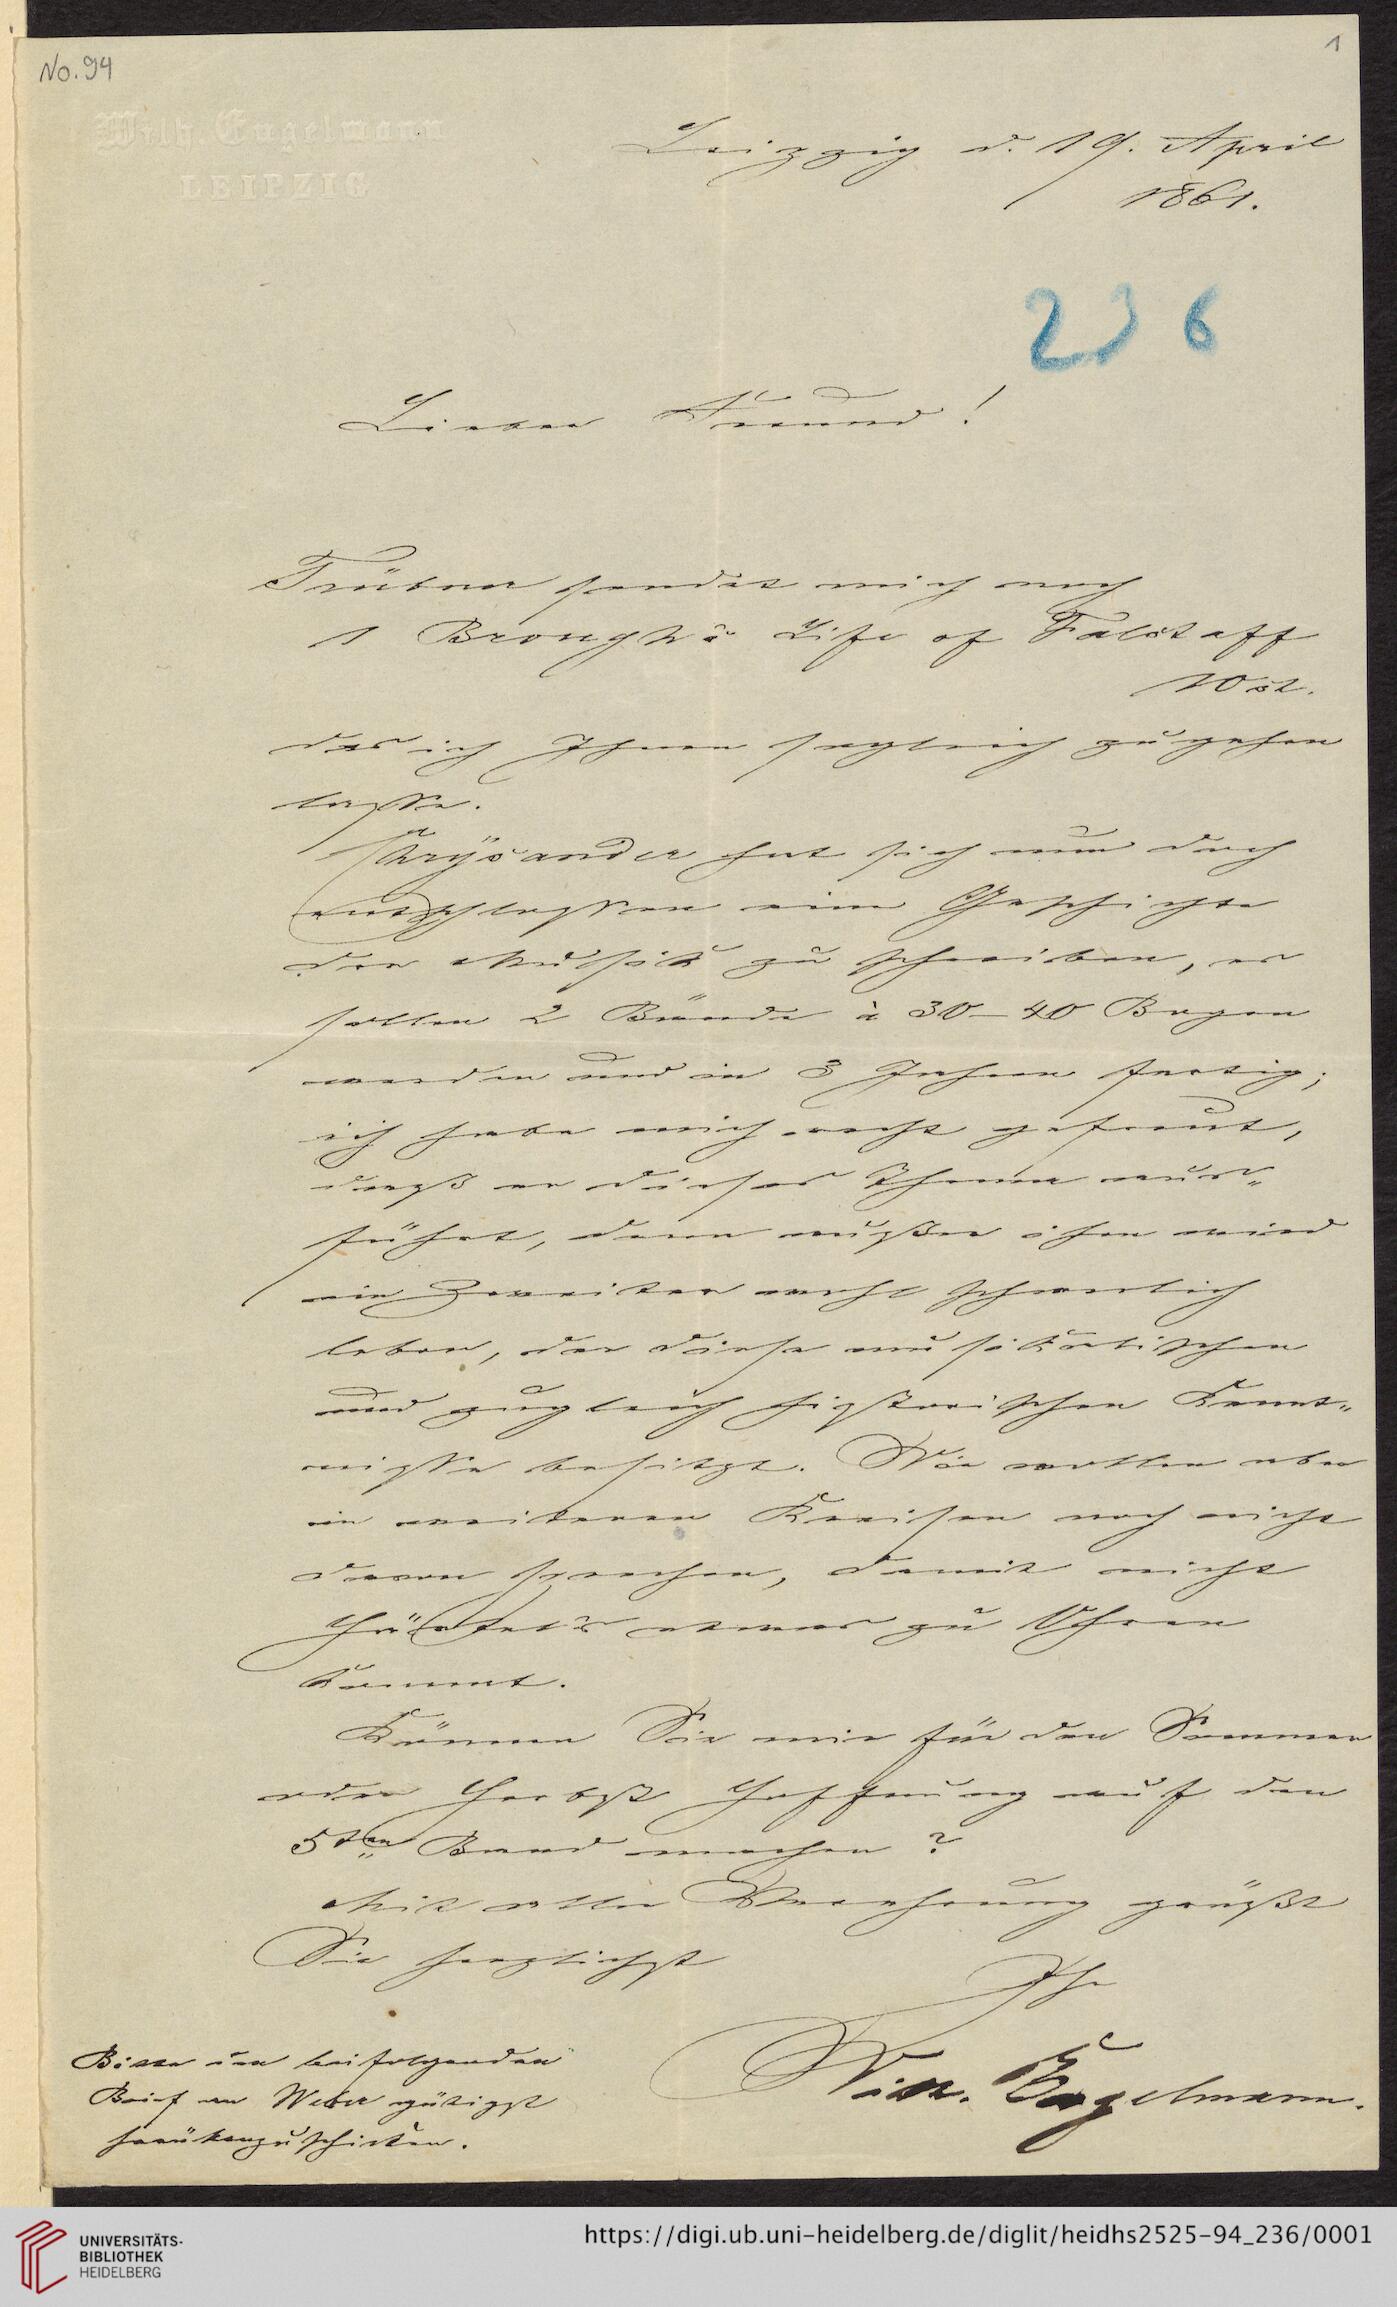 No. 94
1
Wilh. Engelmann
LEIPZIG
Leipzig d. 19. April
1861.
236
Lieber Freund!
Trübner sendet mir noch
1 Brough's Life of Falstaff
10 st.
das ich Ihnen sogleich zugehen
lasse.
Chrysander hat sich nun doch
entschlossen eine Geschichte
der Musik zu schreiben, es
sollen 2 Bände à 30–40 Bogen
werden und in 3 Jahren fertig;
ich habe mich recht gefreut,
daß er dieses Thema aus-
führt, denn außer ihm wird
ein Zweiter wohl schwerlich
leben, der diese musikalischen
und zugleich historischen Kennt-
nisse besitzt. Wir wollen aber
in weiteren Kreisen noch nicht
davon sprechen, damit nicht
Härtel's etwas zu Ohren
kommt.
Können Sie mir für den Sommer
oder Herbst Hoffnung auf den
5ten Band machen?
Mit aller Verehrung grüßt
Sie herzlichst
Ihr
Wilh. Engelmann.
Bitte den beifolgenden
Brief an Weber gütigst
hinüberzuschicken.
UNIVERSITÄTS-
BIBLIOTHEK
HEIDELBERG
https://digi.ub.uni-heidelberg.de/diglit/heidhs2525-94_236/0001